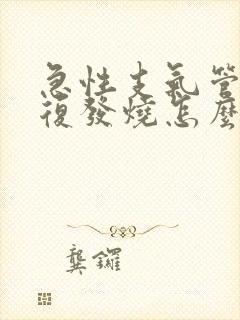 急性支氣管
復發燒怎麼
龔鑼